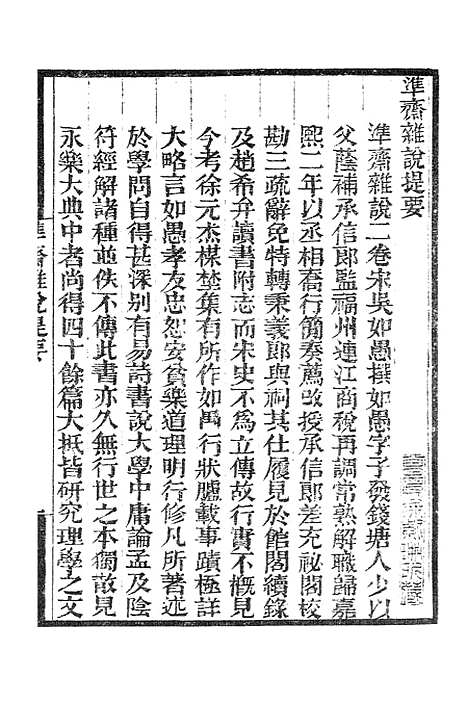 準齋雜說提要
準齋雜說二卷宋吳如愚撰如愚字子發錢塘人少以
父蔭補承信郎監福州連江商稅再調常熟解職歸嘉
熙二年以丞相喬行簡奏薦改授承信郎差充祕閣校
勘三疏辭免特轉秉義郎與祠其仕履見於館閣續錄
及趙希弁讀書附志而宋史不為立傳故行實不槪見
今考徐元杰楳埜集有所作如愚行狀臚載事蹟極詳
大略言如愚孝友忠恕安貧樂道理明行修凡所著述
於學問自得甚深别有易詩書說大學中庸論孟及陰
符經解諸種並佚不傳此書亦久無行世之本獨散見
永樂大典中者尚得四十餘篇大抵皆研究理學之文
準齋雜說提要
一